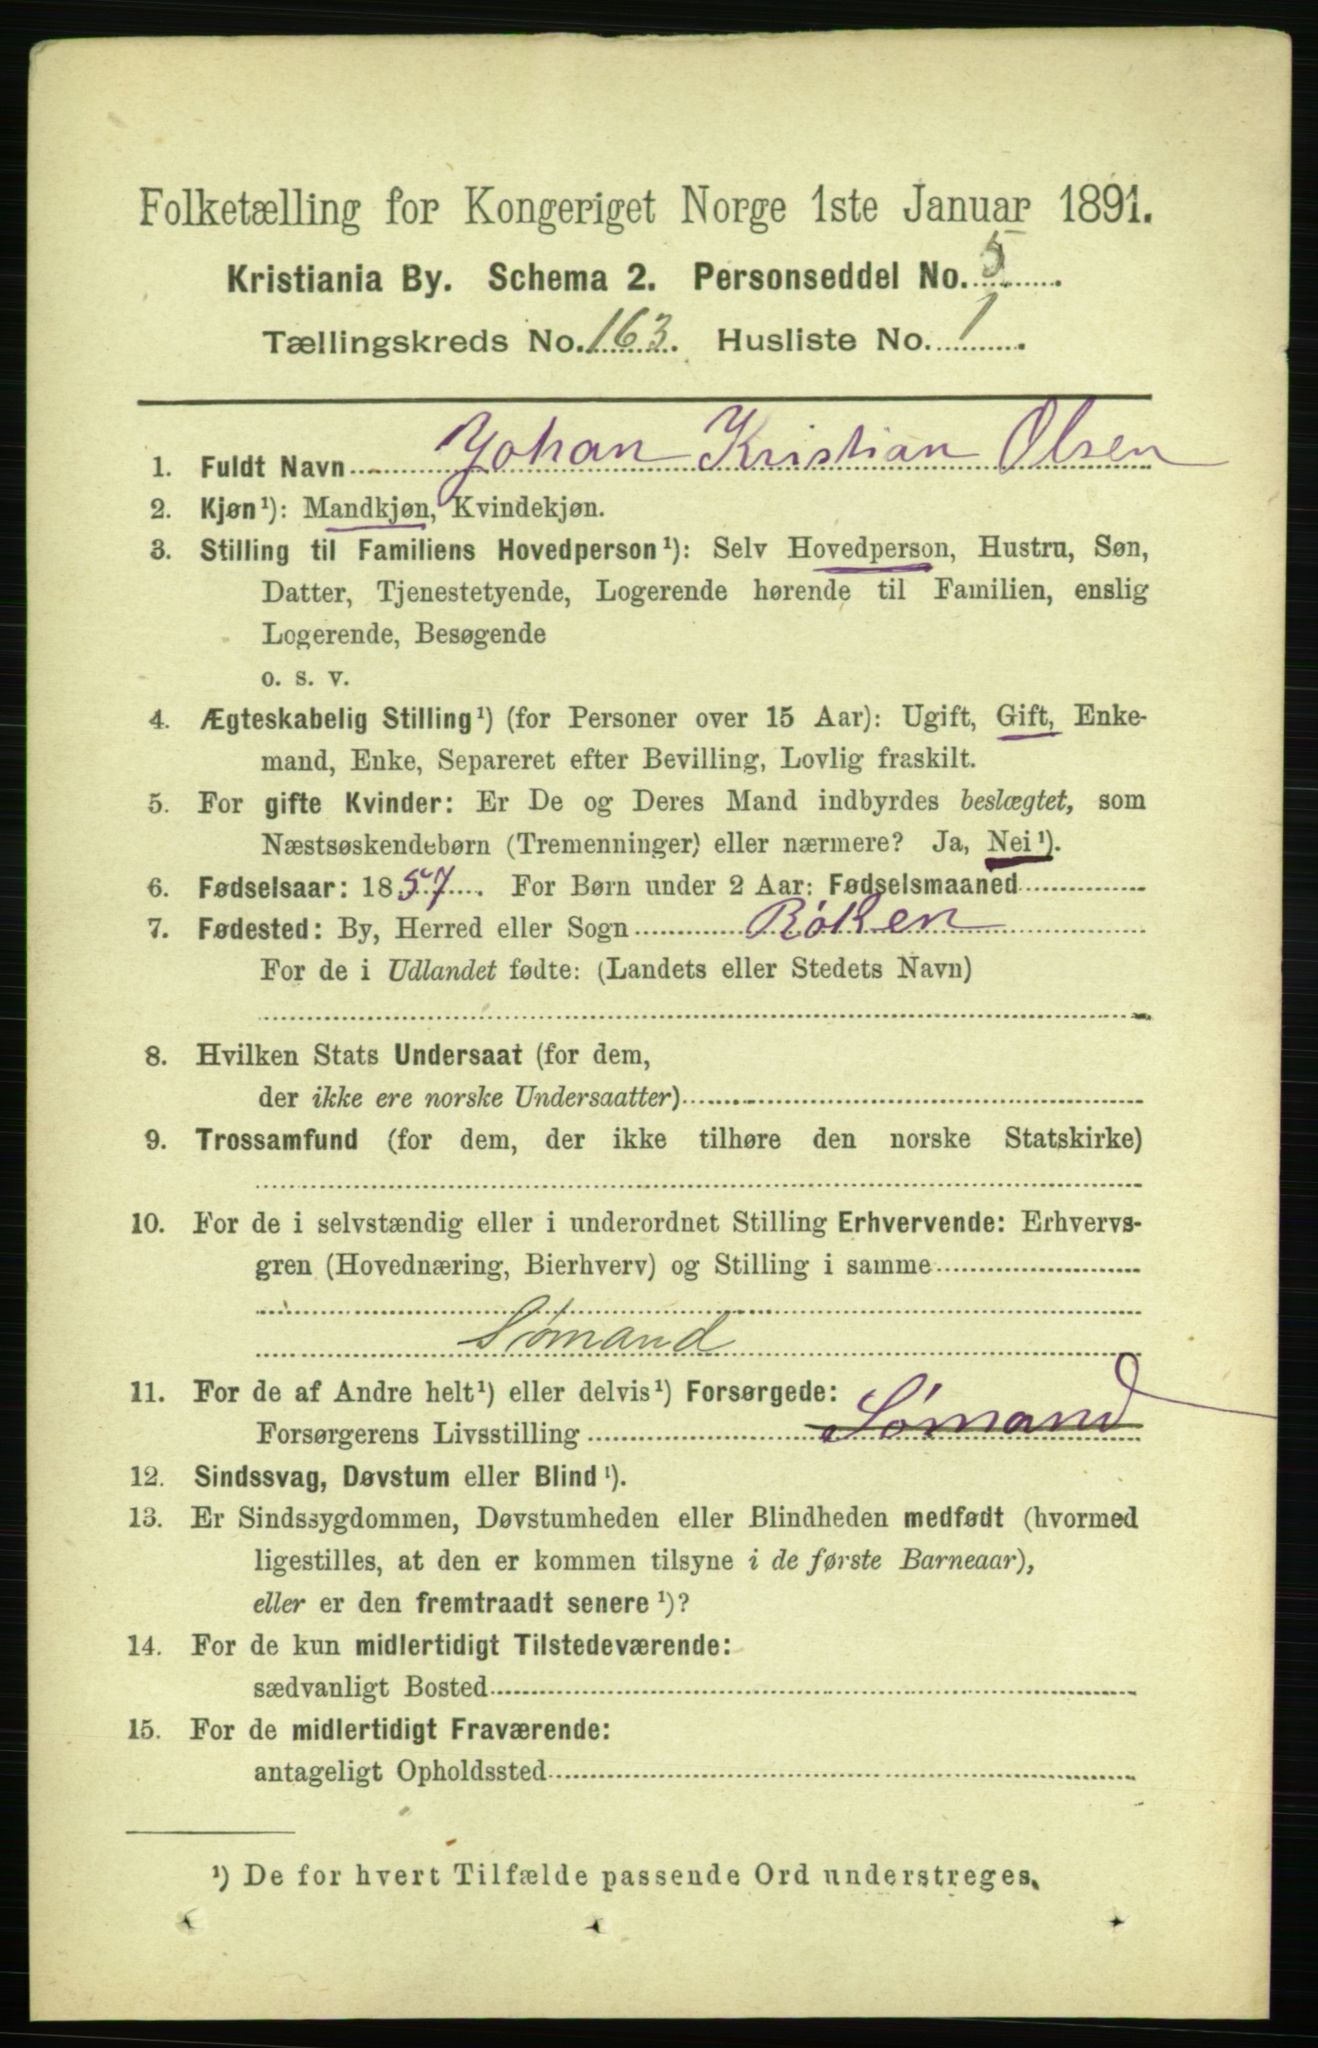 Folketælling for Kongeriget Norge 1ste Januar 1891.
Kristiania By. Schema 2. Personseddel No. 5.
Tællingskreds No. 163. Husliste No. 1.
1. Fuldt Navn Johan Kristian Olsen
2. Kjøn¹): Mandkjøn, Kvindekjøn.
3. Stilling til Familiens Hovedperson¹): Selv Hovedperson, Hustru, Søn,
Datter, Tjenestetyende, Logerende hørende til Familien, enslig
Logerende, Besøgende
o. s. v.
4. Ægteskabelig Stilling¹) (for Personer over 15 Aar): Ugift, Gift, Enke-
mand, Enke, Separeret efter Bevilling, Lovlig fraskilt.
5. For gifte Kvinder: Er De og Deres Mand indbyrdes beslægtet, som
Næstsøskendebørn (Tremenninger) eller nærmere? Ja, Nei¹).
6. Fødselsaar: 1857. For Børn under 2 Aar: Fødselsmaaned
7. Fødested: By, Herred eller Sogn Røken
For de i Udlandet fødte: (Landets eller Stedets Navn)
8. Hvilken Stats Undersaat (for dem,
der ikke ere norske Undersaatter)
9. Trossamfund (for dem, der ikke tilhøre den norske Statskirke)
10. For de i selvstændig eller i underordnet Stilling Erhvervende: Erhvervs-
gren (Hovednæring, Bierhverv) og Stilling i samme
Sømand
11. For de af Andre helt¹) eller delvis¹) Forsørgede:
Forsørgerens Livsstilling Sømand
12. Sindssvag, Døvstum eller Blind¹).
13. Er Sindssygdommen, Døvstumheden eller Blindheden medfødt (hvormed
ligestilles, at den er kommen tilsyne i de første Barneaar),
eller er den fremtraadt senere¹)?
14. For de kun midlertidigt Tilstedeværende:
sædvanligt Bosted
15. For de midlertidigt Fraværende:
antageligt Opholdssted
¹) De for hvert Tilfælde passende Ord understreges.